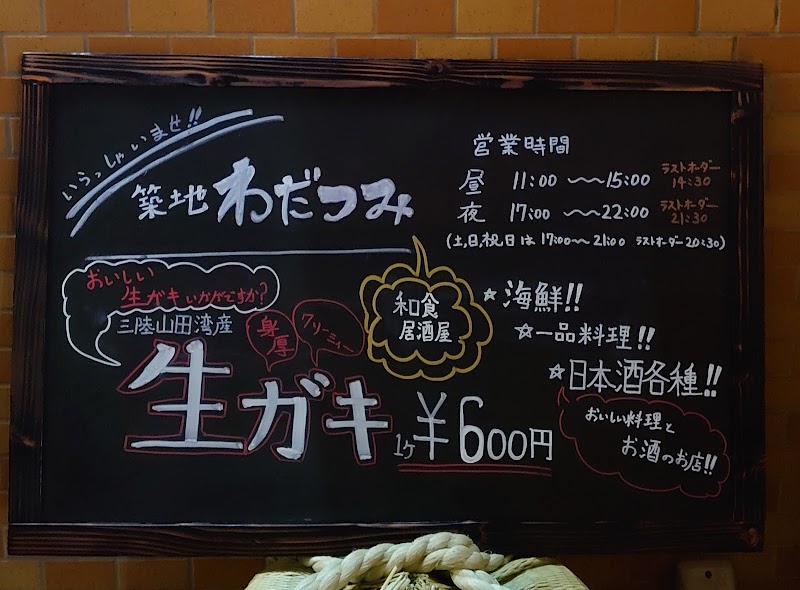 いらっしゃいませ!!
築地 わだつみ
営業時間
昼 11:00 〜〜15:00 ラストオーダー 14:30
夜 17:00 〜〜22:00 ラストオーダー 21:30
(土,日,祝日は 17:00〜21:00 ラストオーダー 20:30)
おいしい
生ガキ いかがですか?
三陸山田湾産
身厚
クリーミィー
生ガキ
1ヶ ¥600円
和食
居酒屋
☆海鮮!!
☆一品料理!!
☆日本酒各種!!
おいしい料理と
お酒のお店!!